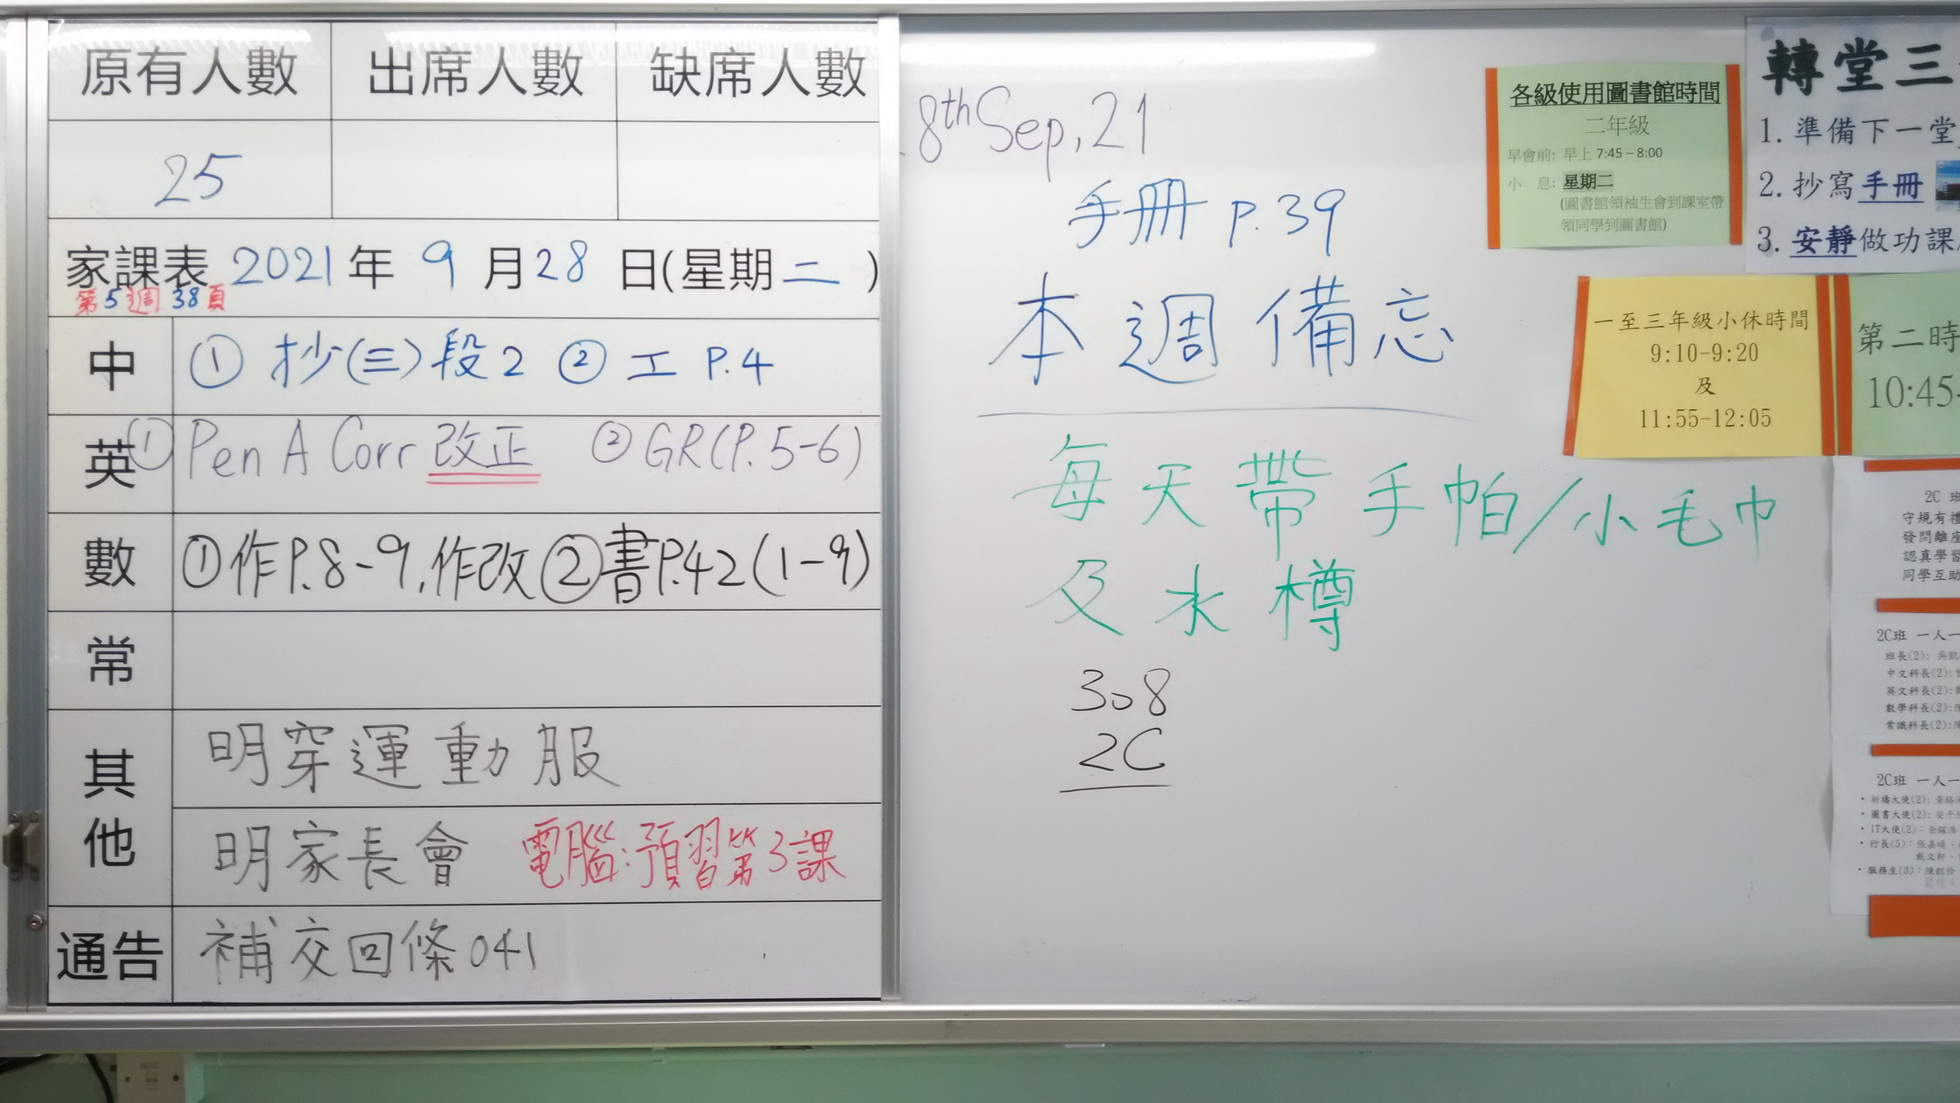 原有人數 出席人數 缺席人數
25
家課表 2021年 9月28日(星期二)
第5週 38頁
中 ① 抄(三)段2 ② 工 P.4
英 ① Pen A Corr 改正 ② GR(P.5-6)
數 ①作P.8-9,作改 ②書P.42(1-9)
常
其他 明穿運動服
明家長會 電腦:預習第3課
通告 補交回條041
8th Sep, 21
手冊 P.39
本週備忘
每天帶手帕/小毛巾
及水樽
308
2C
各級使用圖書館時間
二年級
早會前: 早上 7:45 – 8:00
小 息: 星期二
(圖書館領袖生會到課室帶
領同學到圖書館)
轉堂三
1. 準備下一堂
2. 抄寫手冊
3. 安靜做功課
一至三年級小休時間
9:10-9:20
及
11:55-12:05
第二時
10:45-
2C 班
守規有禮
發問離座
認真學習
同學互助
2C班 一人一
班長(2):
中文科長(2):
英文科長(2):
數學科長(2):
常識科長(2):
2C班 一人一
圖書大使(2):
IT大使(2):
行長(5):
服務生(3):